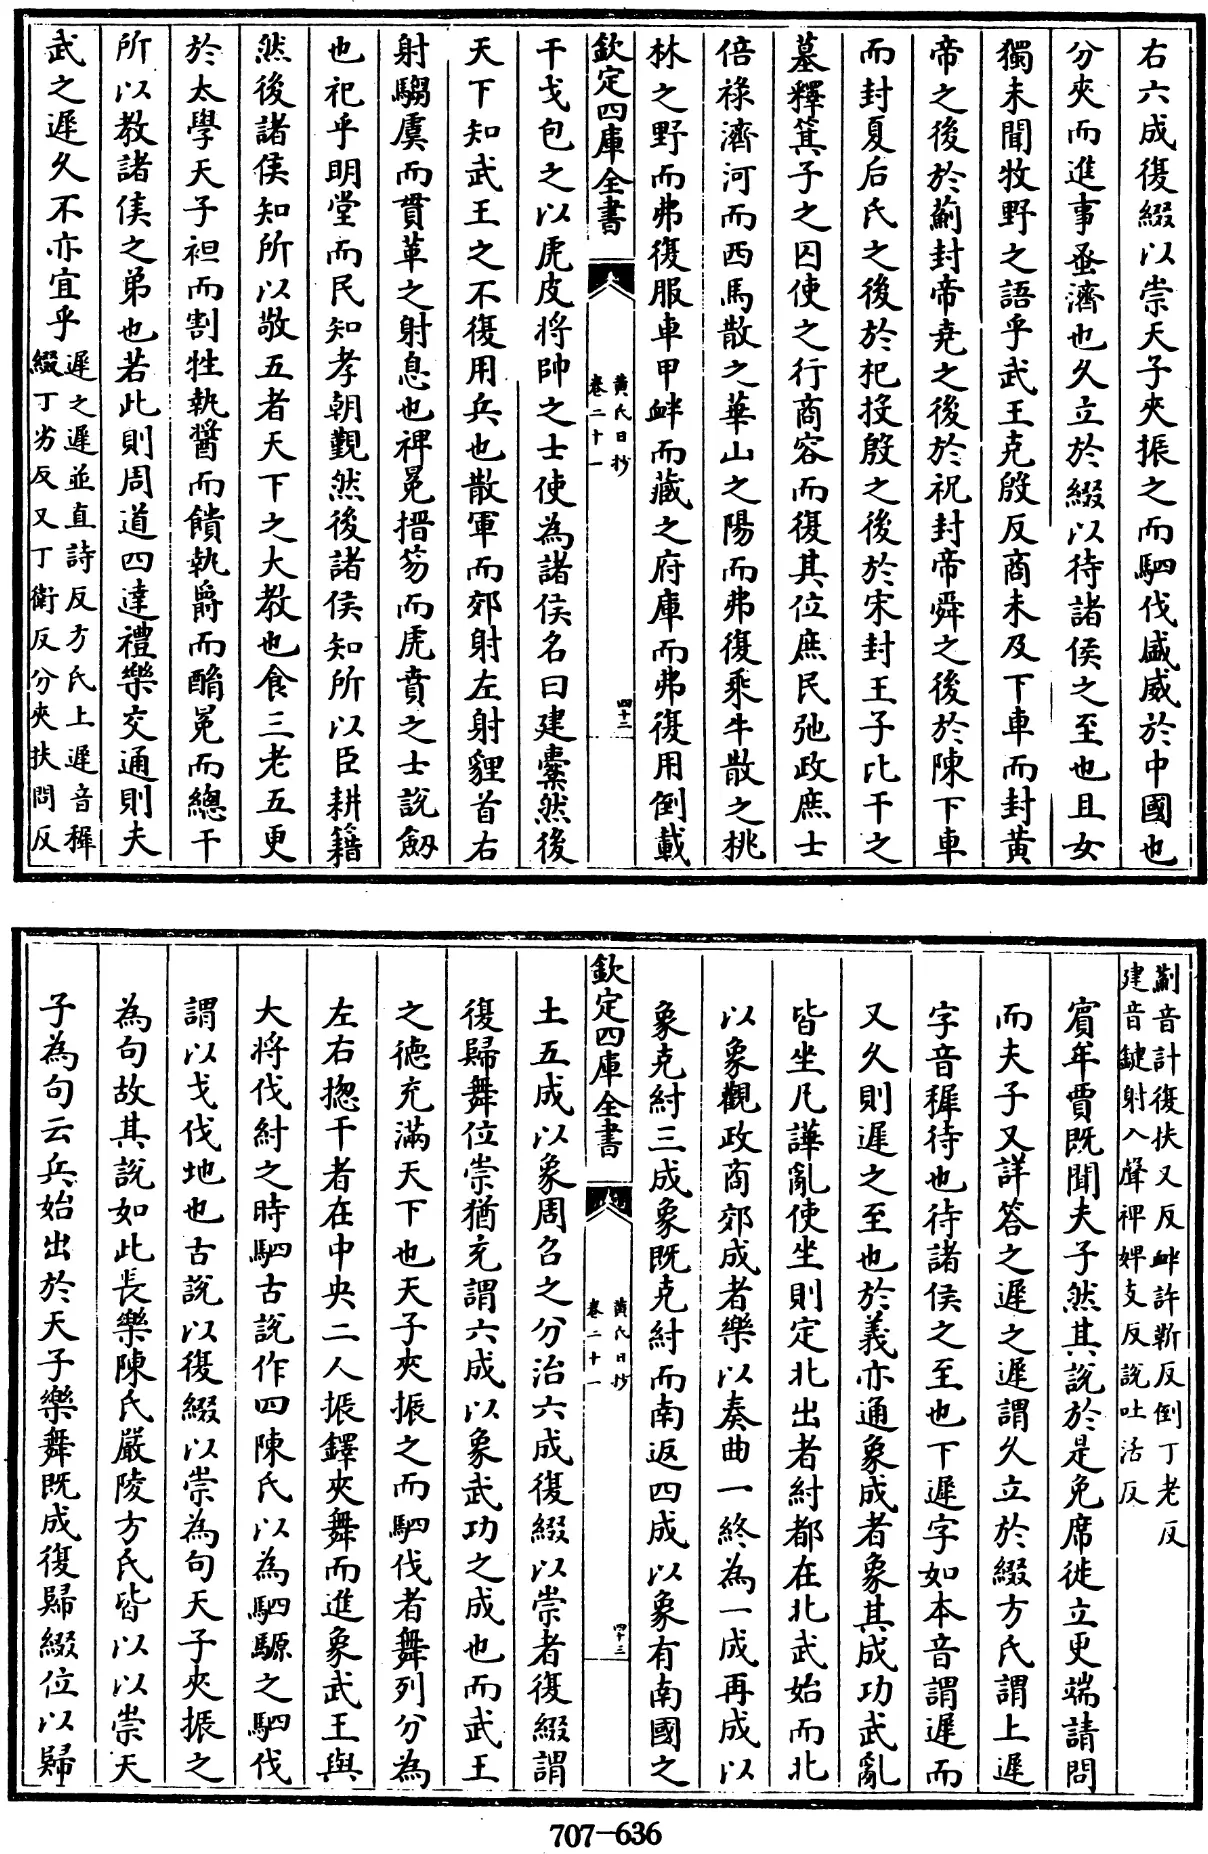 右六成復綴以崇天子夾振之而駟伐盛威於中國也
分夾而進事蚤濟也久立於綴以待諸侯之至也且女
獨未聞牧野之語乎武王克殷反商未及下車而封黃
帝之後於薊封帝堯之後於祝封帝舜之後於陳下車
而封夏后氏之後於杞投殷之後於宋封王子比干之
墓釋箕子之囚使之行商容而復其位庶民弛政庶士
倍祿濟河而西馬散之華山之陽而弗復乘牛散之桃
林之野而弗復服車甲衅而藏之府庫而弗復用倒載
欽定四庫全書
黃氏日抄
卷二十一
四十三
干戈包之以虎皮將帥之士使為諸侯名曰建櫜然後
天下知武王之不復用兵也散軍而郊射左射貍首右
射騶虞而貫革之射息也裨冕搢笏而虎賁之士說劔
也祀乎明堂而民知孝朝覲然後諸侯知所以臣耕籍
然後諸侯知所以敬五者天下之大教也食三老五更
於太學天子袒而割牲執醬而饋執爵而酳冕而總干
所以教諸侯之弟也若此則周道四達禮樂交通則夫
武之遲久不亦宜乎
遲之遲並直詩反方氏上遲音穉
綴丁劣反又丁衛反分夾扶問反
薊音計復扶又反衅許靳反倒丁老反
建音鍵射入聲裨婢支反說吐活反
賓牟賈既聞夫子然其說於是免席徙立更端請問
而夫子又詳答之遲之遲謂久立於綴方氏謂上遲
字音穉待也待諸侯之至也下遲字如本音謂遲而
又久則遲之至也於義亦通象成者象其成功武亂
皆坐凡譁亂使坐則定北出者紂都在北武始而北
以象觀政商郊成者樂以奏曲一終為一成再成以
象克紂三成象既克紂而南返四成以象有南國之
欽定四庫全書
黃氏日抄
卷二十一
四十三
土五成以象周召之分治六成復綴以崇者復綴謂
復歸舞位崇猶充謂六成以象武功之成也而武王
之德充滿天下也天子夾振之而駟伐者舞列分為
左右揔干者在中央二人振鐸夾舞而進象武王與
大將伐紂之時駟古說作四陳氏以為駟騵之駟伐
謂以戈伐地也古說以復綴以崇為句天子夾振之
為句故其說如此長樂陳氏嚴陵方氏皆以以崇天
子為句云兵始出於天子樂舞既成復歸綴位以歸
707-636